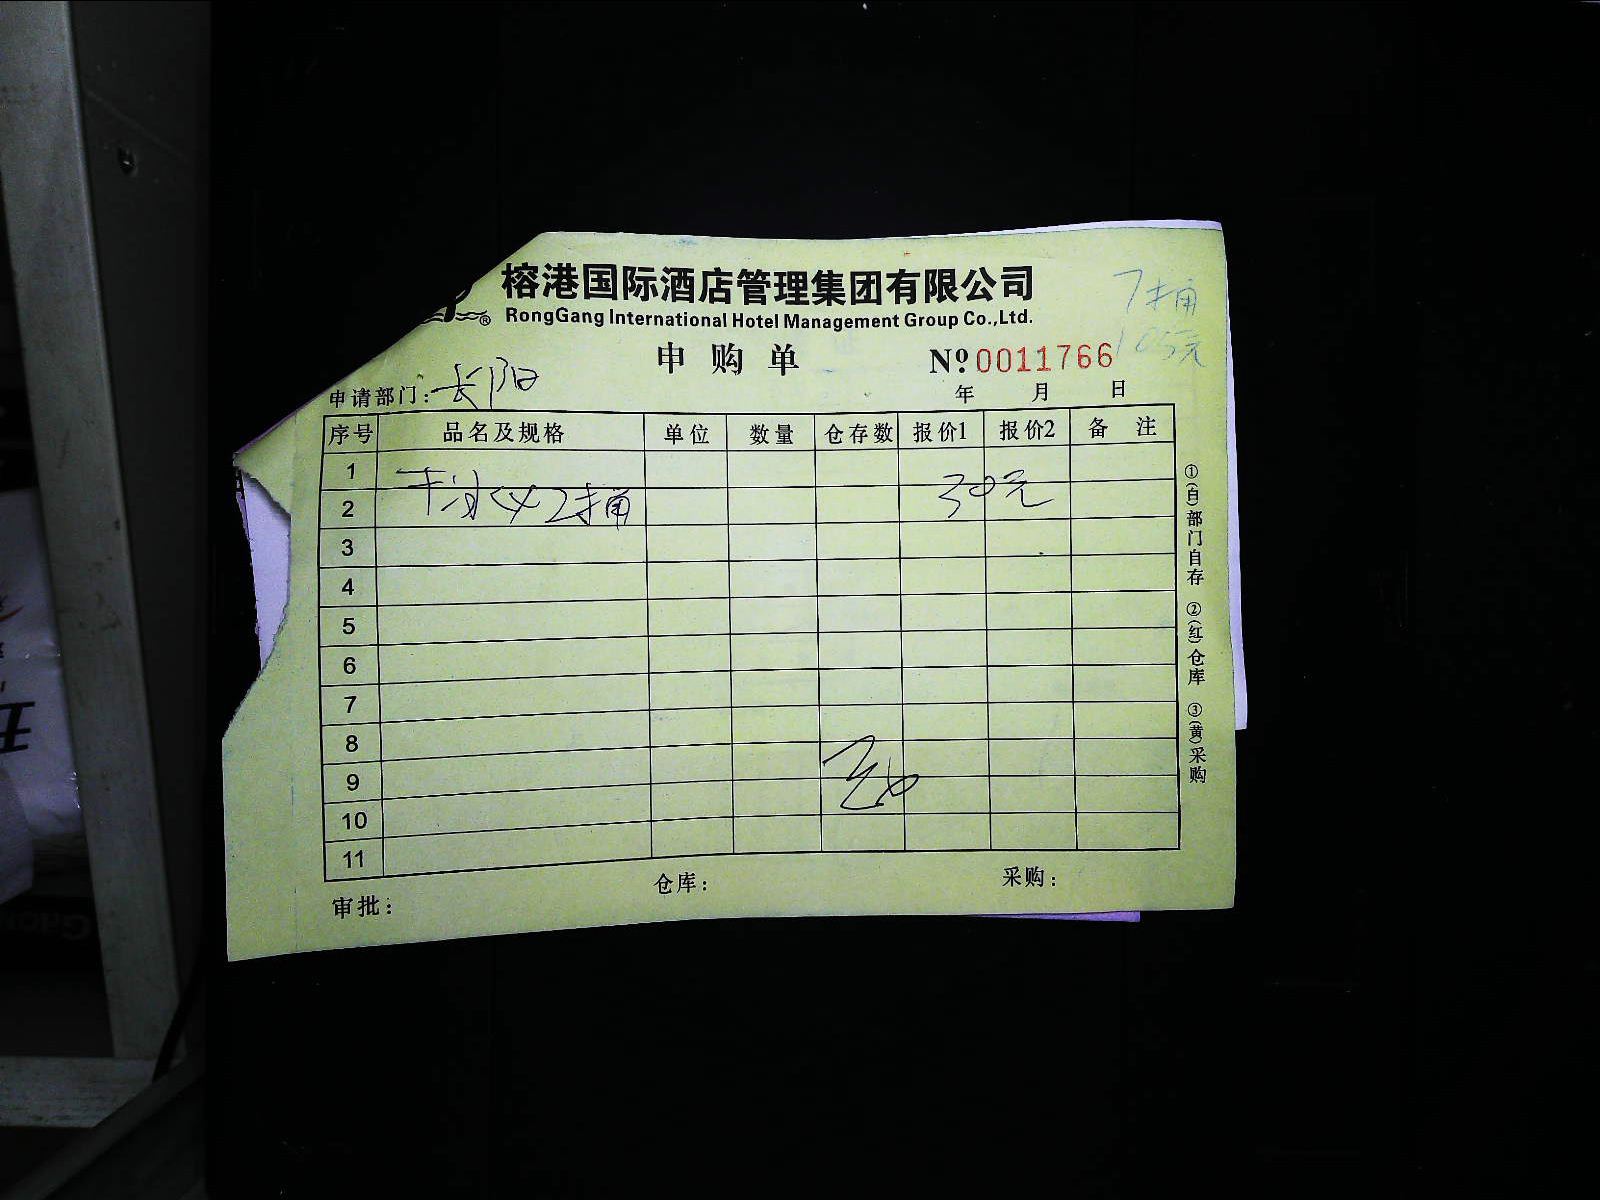 榕港国际酒店管理集团有限公司
®
RongGang International Hotel Management Group Co.,Ltd.
7桶
105元
申购单
№ 0011766
申请部门：长阳
年 月 日
序号 品名及规格 单位 数量 仓存数 报价1 报价2 备 注
1
2 干冰 2桶 30元
3
4
5
6
7
8
9
10
11
审批： 仓库： 采购：
①(白)部门自存 ②(红)仓库 ③(黄)采购